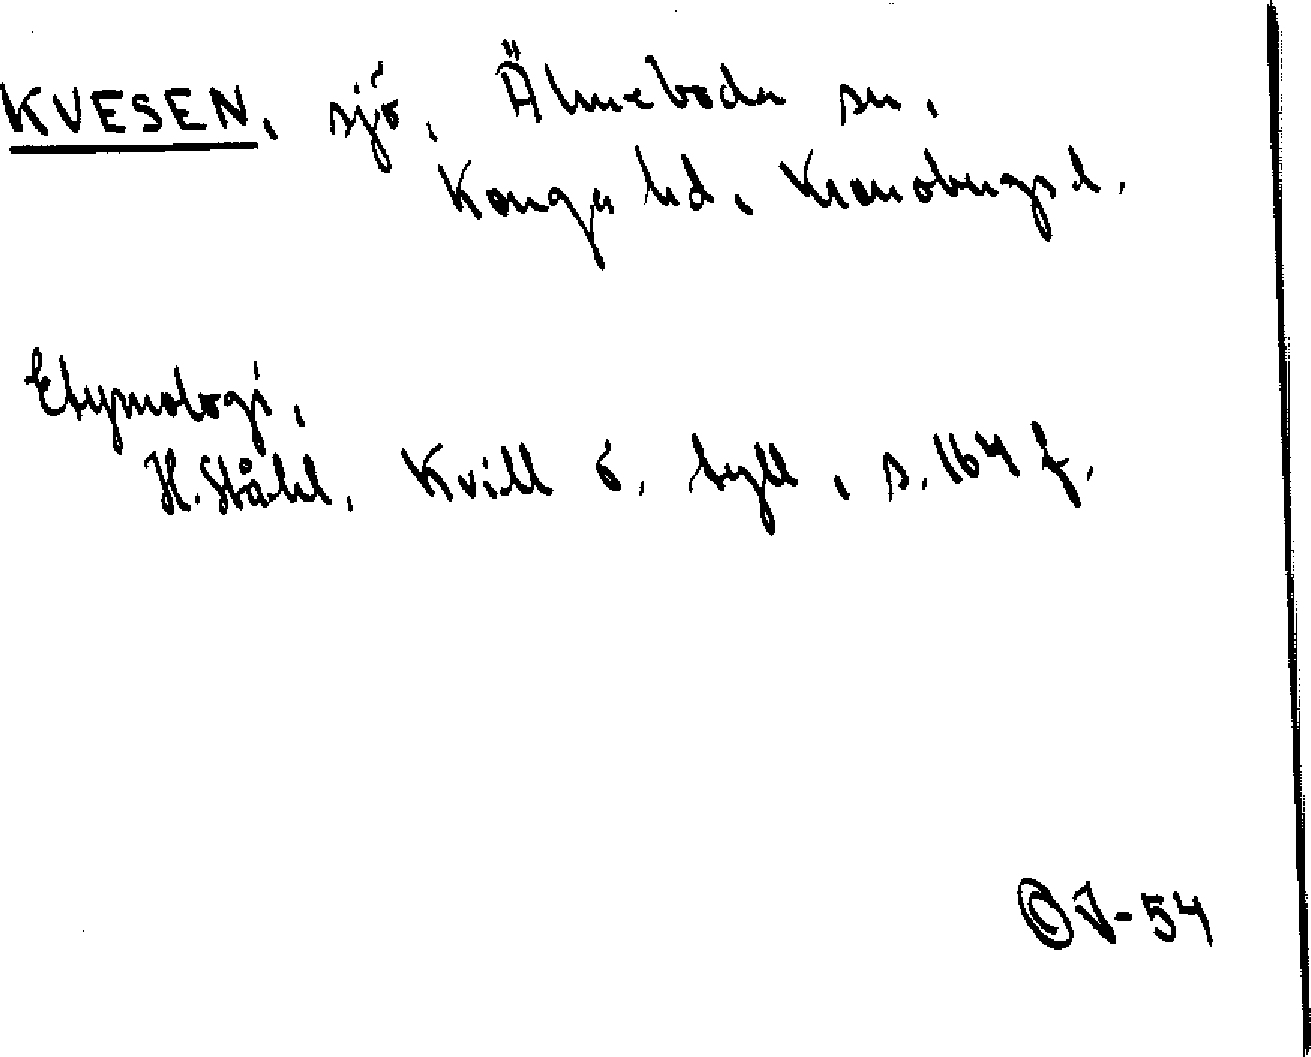 KVESEN, sjö, Älmeboda sn,
Konga hd, Kronobergs l.
Etymologi,
H. Ståhl, Kvill o. tyll, s. 164 f.
-54